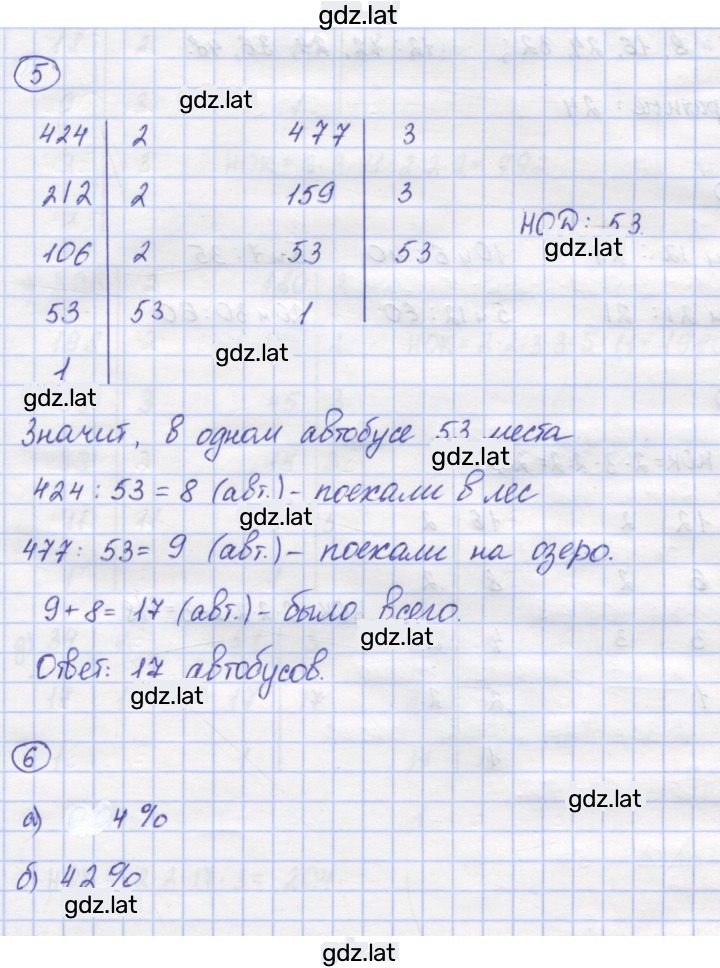 gdz.lat
5
gdz.lat
424 | 2 477 | 3
212 | 2 159 | 3
НОД: 53
106 | 2 53 | 53
gdz.lat
53 | 53 1
gdz.lat
1
gdz.lat
Значит, в одном автобусе 53 места
gdz.lat
424 : 53 = 8 (авт.) - поехали в лес
gdz.lat
477 : 53 = 9 (авт.) - поехали на озеро.
9 + 8 = 17 (авт.) - было всего.
gdz.lat
Ответ: 17 автобусов.
gdz.lat
6
gdz.lat
а) 4 %
б) 42 %
gdz.lat
gdz.lat